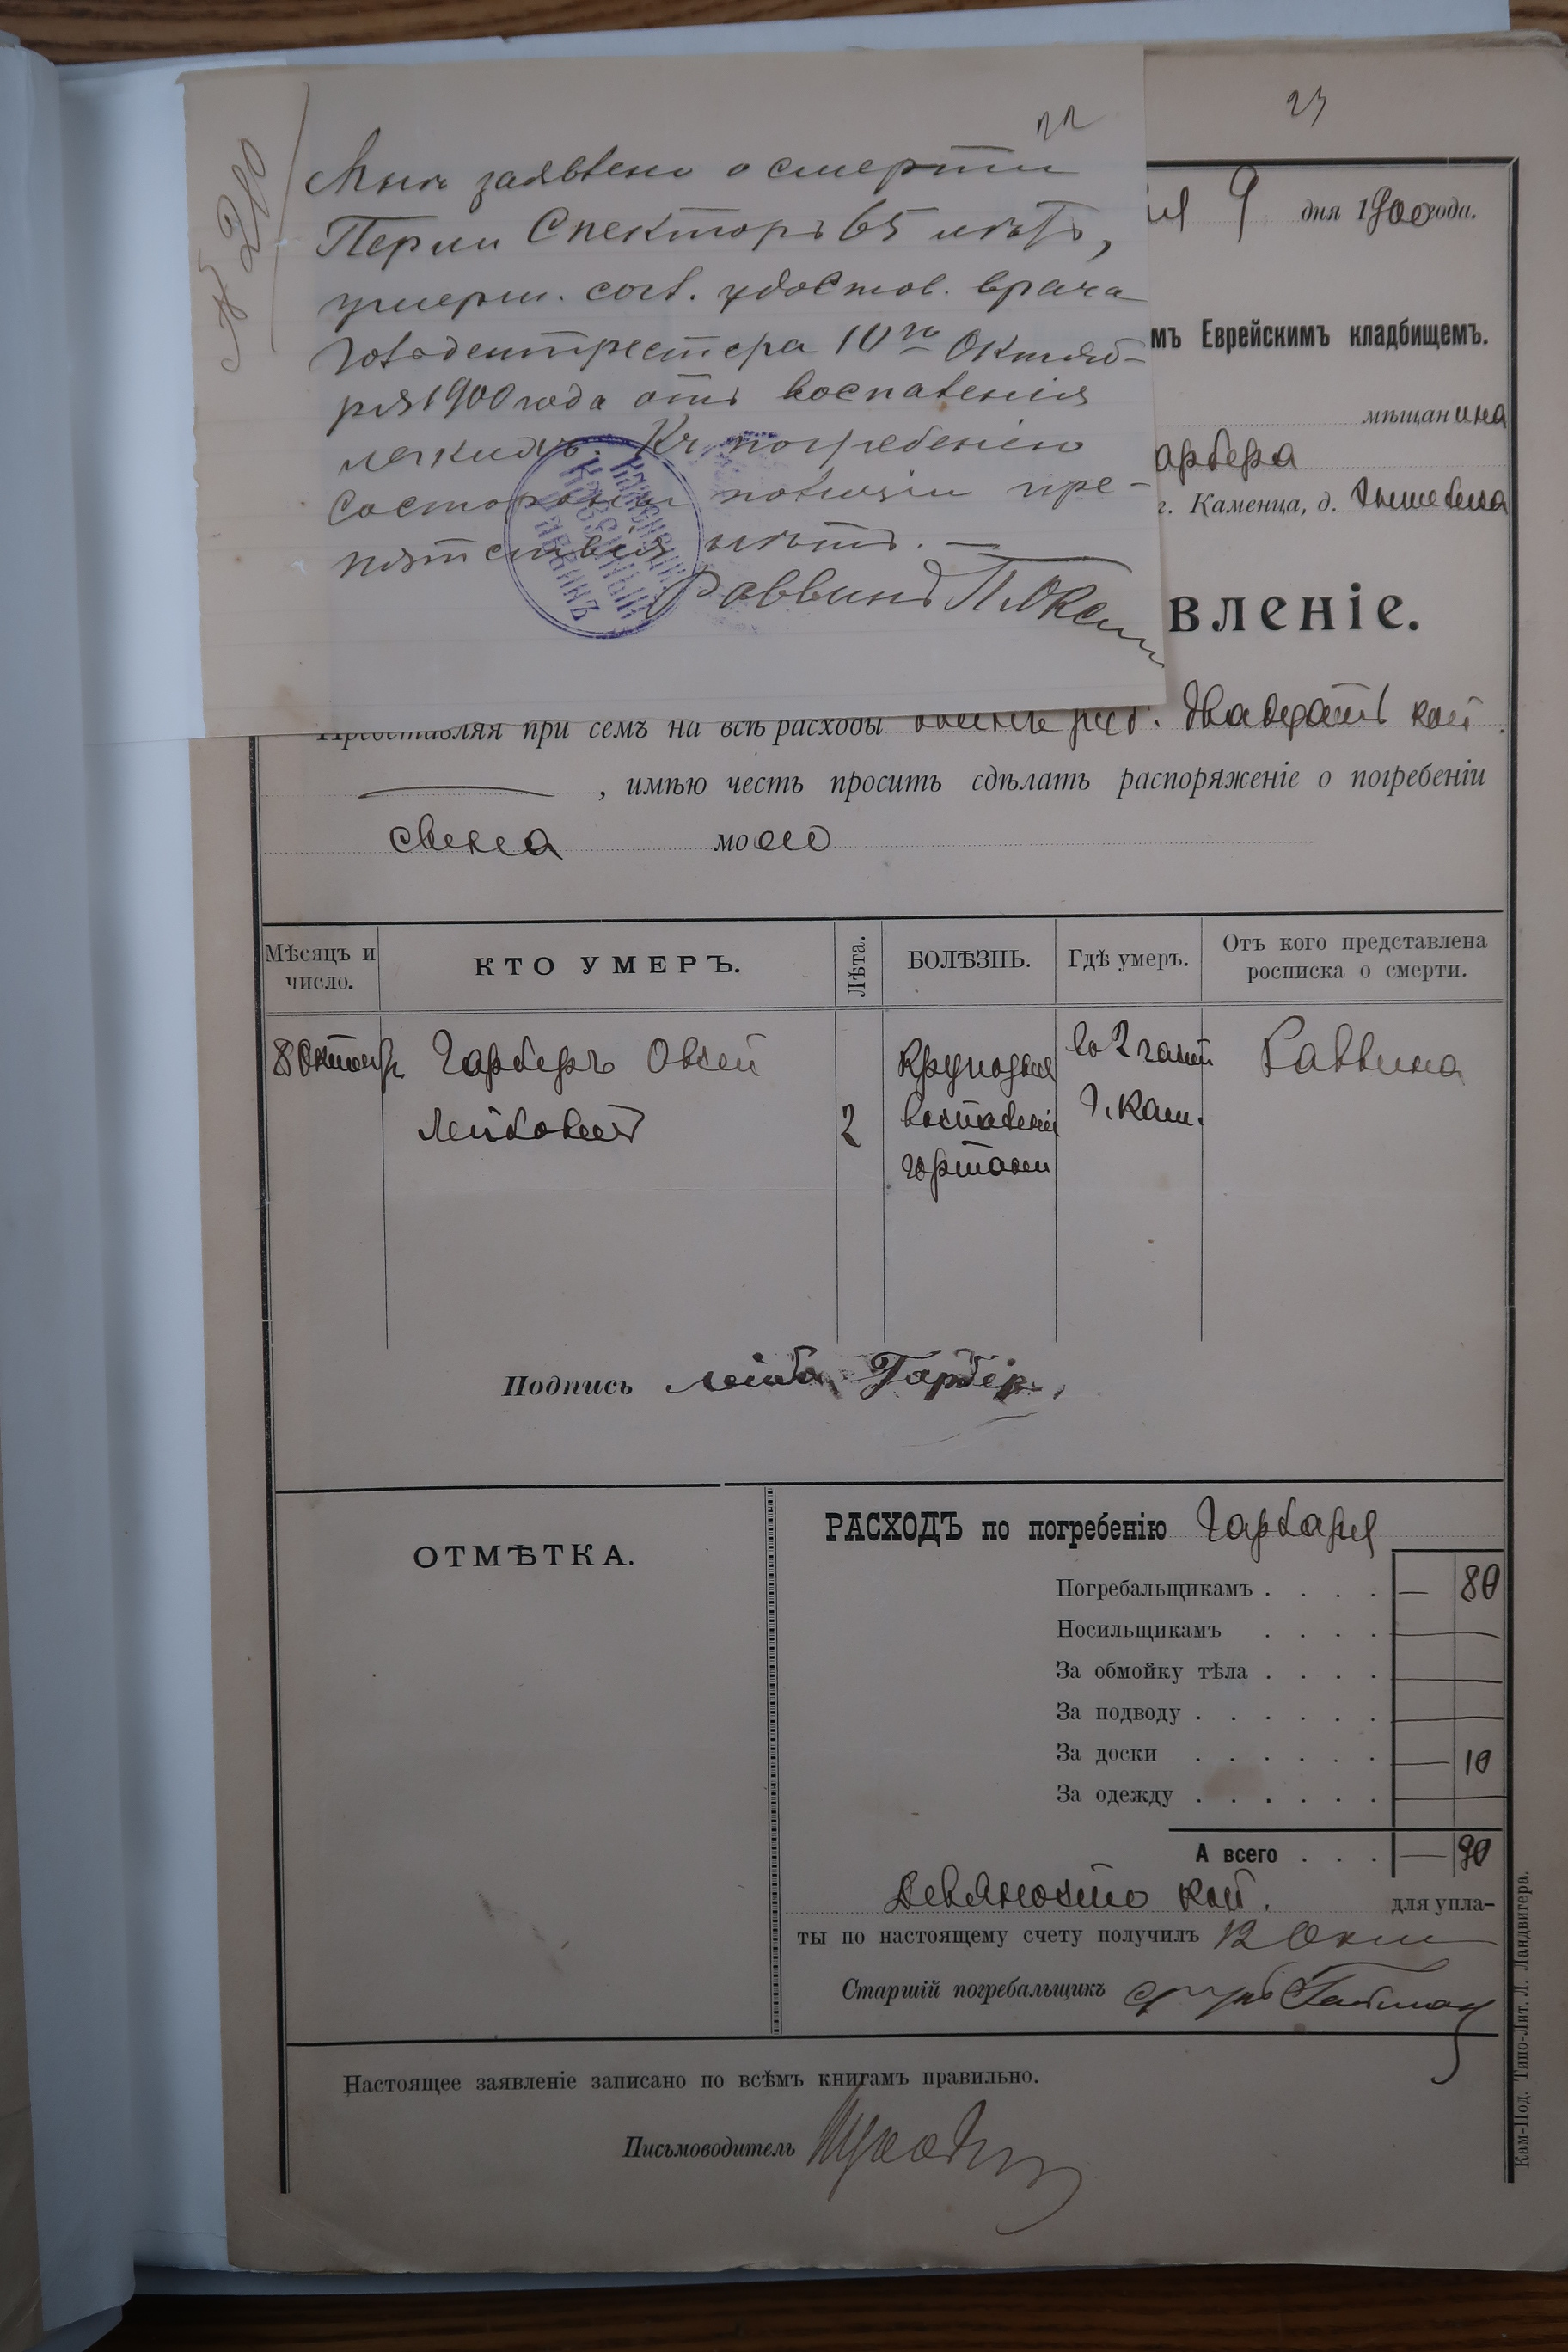 22
№ 210
Мнѣ заявлено о смерти
Перли Спекторъ 65 лѣтъ,
умерш. согл. удостов. врача
10го Октяб-
ря 1900 года отъ воспаленія
легкихъ. Къ погребенію
со стороны полиціи пре-
пятствія нѣтъ. —
Раввинъ
Каменецкій
Казенный
Раввинъ
23
9 дня 1900 года.
мъ Еврейскимъ кладбищемъ.
мѣщанина
арбера
г. Каменца, д.
вленіе.
Представляя при семъ на всѣ расходы руб. двадцать коп.
, имѣю честь просить сдѣлать распоряженіе о погребеніи
сына моего
Мѣсяцъ и число.
КТО УМЕРЪ.
Лѣта.
БОЛѢЗНЬ.
Гдѣ умеръ.
Отъ кого представлена росписка о смерти.
8 Октября
Гарберъ Овсей
Лейбовичъ
2
Крупозное
воспаленіе
гортани
во 2 части
г. Кам.
Раввина
Подпись Лейба Гарбер
ОТМѢТКА.
РАСХОДЪ по погребенію Гарбаря
Погребальщикамъ . . . . — 80
Носильщикамъ . . . . —
За обмойку тѣла . . . . —
За подводу . . . . . . —
За доски . . . . . . — 10
За одежду . . . . . . —
А всего . . . — 90
Девяносто коп. для упла-
ты по настоящему счету получилъ 12 Окт
Старшій погребальщикъ
Настоящее заявленіе записано по всѣмъ книгамъ правильно.
Письмоводитель
Кам-Под. Типо-Лит. Л. Ландвигера.